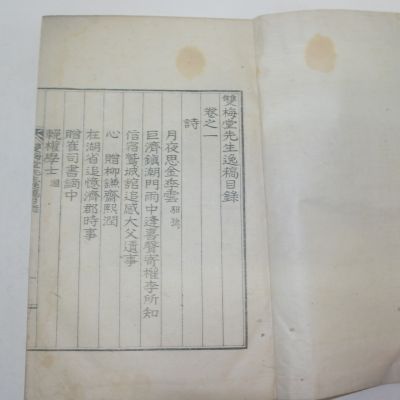 雙梅堂先生逸稿目錄
卷之一
詩
月夜思金季雲
巨濟鎮潮門雨中逢書聲寄權李所知
信宿鷲城館追感大父遺事
心 贈柳謙齋熙潤
在湖省追憶濟郡時事
贈崔司書謫中
輓權學士